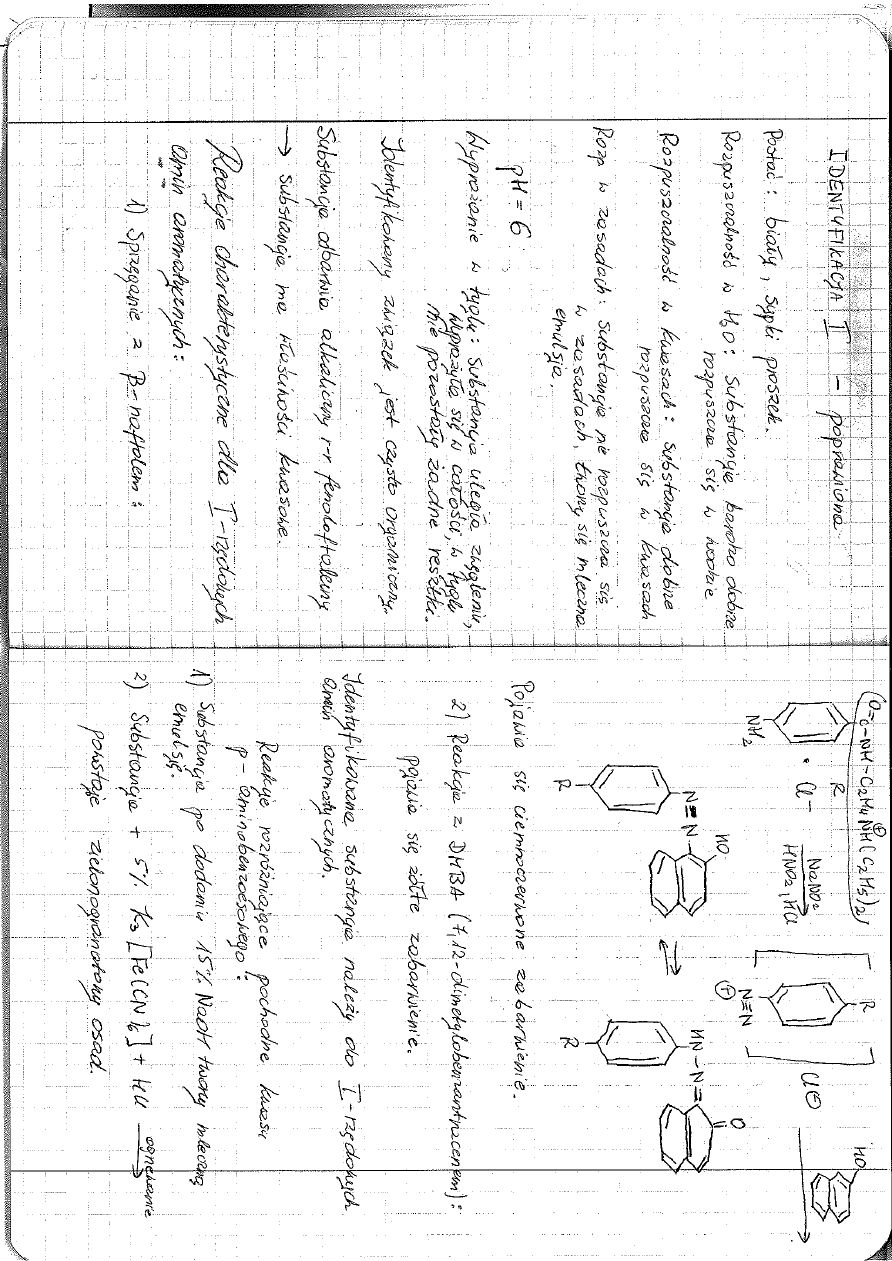 IDENTYFIKACJA I – poprawiona
Postać: biały, sypki proszek.
Rozpuszczalność w H₂O: Substancja bardzo dobrze
rozpuszcza się w wodzie
Rozpuszczalność w kwasach: substancja dobrze
rozpuszcza się w kwasach
Rozp w zasadach: Substancja nie rozpuszcza się
w zasadach, tworzy się mleczna
emulsja.
pH = 6
Wyprażanie w tyglu: Substancja uległa zwęgleniu,
wyprażyła się w całości, w tyglu
nie pozostały żadne resztki.
Identyfikowany związek jest czysto organiczny.
Substancja odbarwia alkaliczny r-r fenoloftaleiny
→ substancja ma właściwości kwasowe.
Reakcje charakterystyczne dla I-rzędowych
amin aromatycznych:
1) Sprzęganie z β-naftolem:
O=C-NH-C₂H₄NH(C₂H₅)₂ ⊕
R
NH₂
• Cl-
NaNO₂
HNO₂, HCl
R
N≡N
⊕
Cl⊖
HO
HO
N=N
R
⇌
O
HN-N=
R
Pojawia się ciemnoczerwone zabarwienie.
2) Reakcja z DMBA (7,12-dimetylobenzantracenem):
pojawia się żółte zabarwienie.
Identyfikowana substancja należy do I-rzędowych
amin aromatycznych.
Reakcje rozróżniające pochodne kwasu
p-aminobenzoesowego:
1) Substancja po dodaniu 15% NaOH tworzy mleczną
emulsję.
2) Substancja + 5% K₃[Fe(CN)₆] + HCl ogrzewanie →
powstaje zielonogranatowy osad.